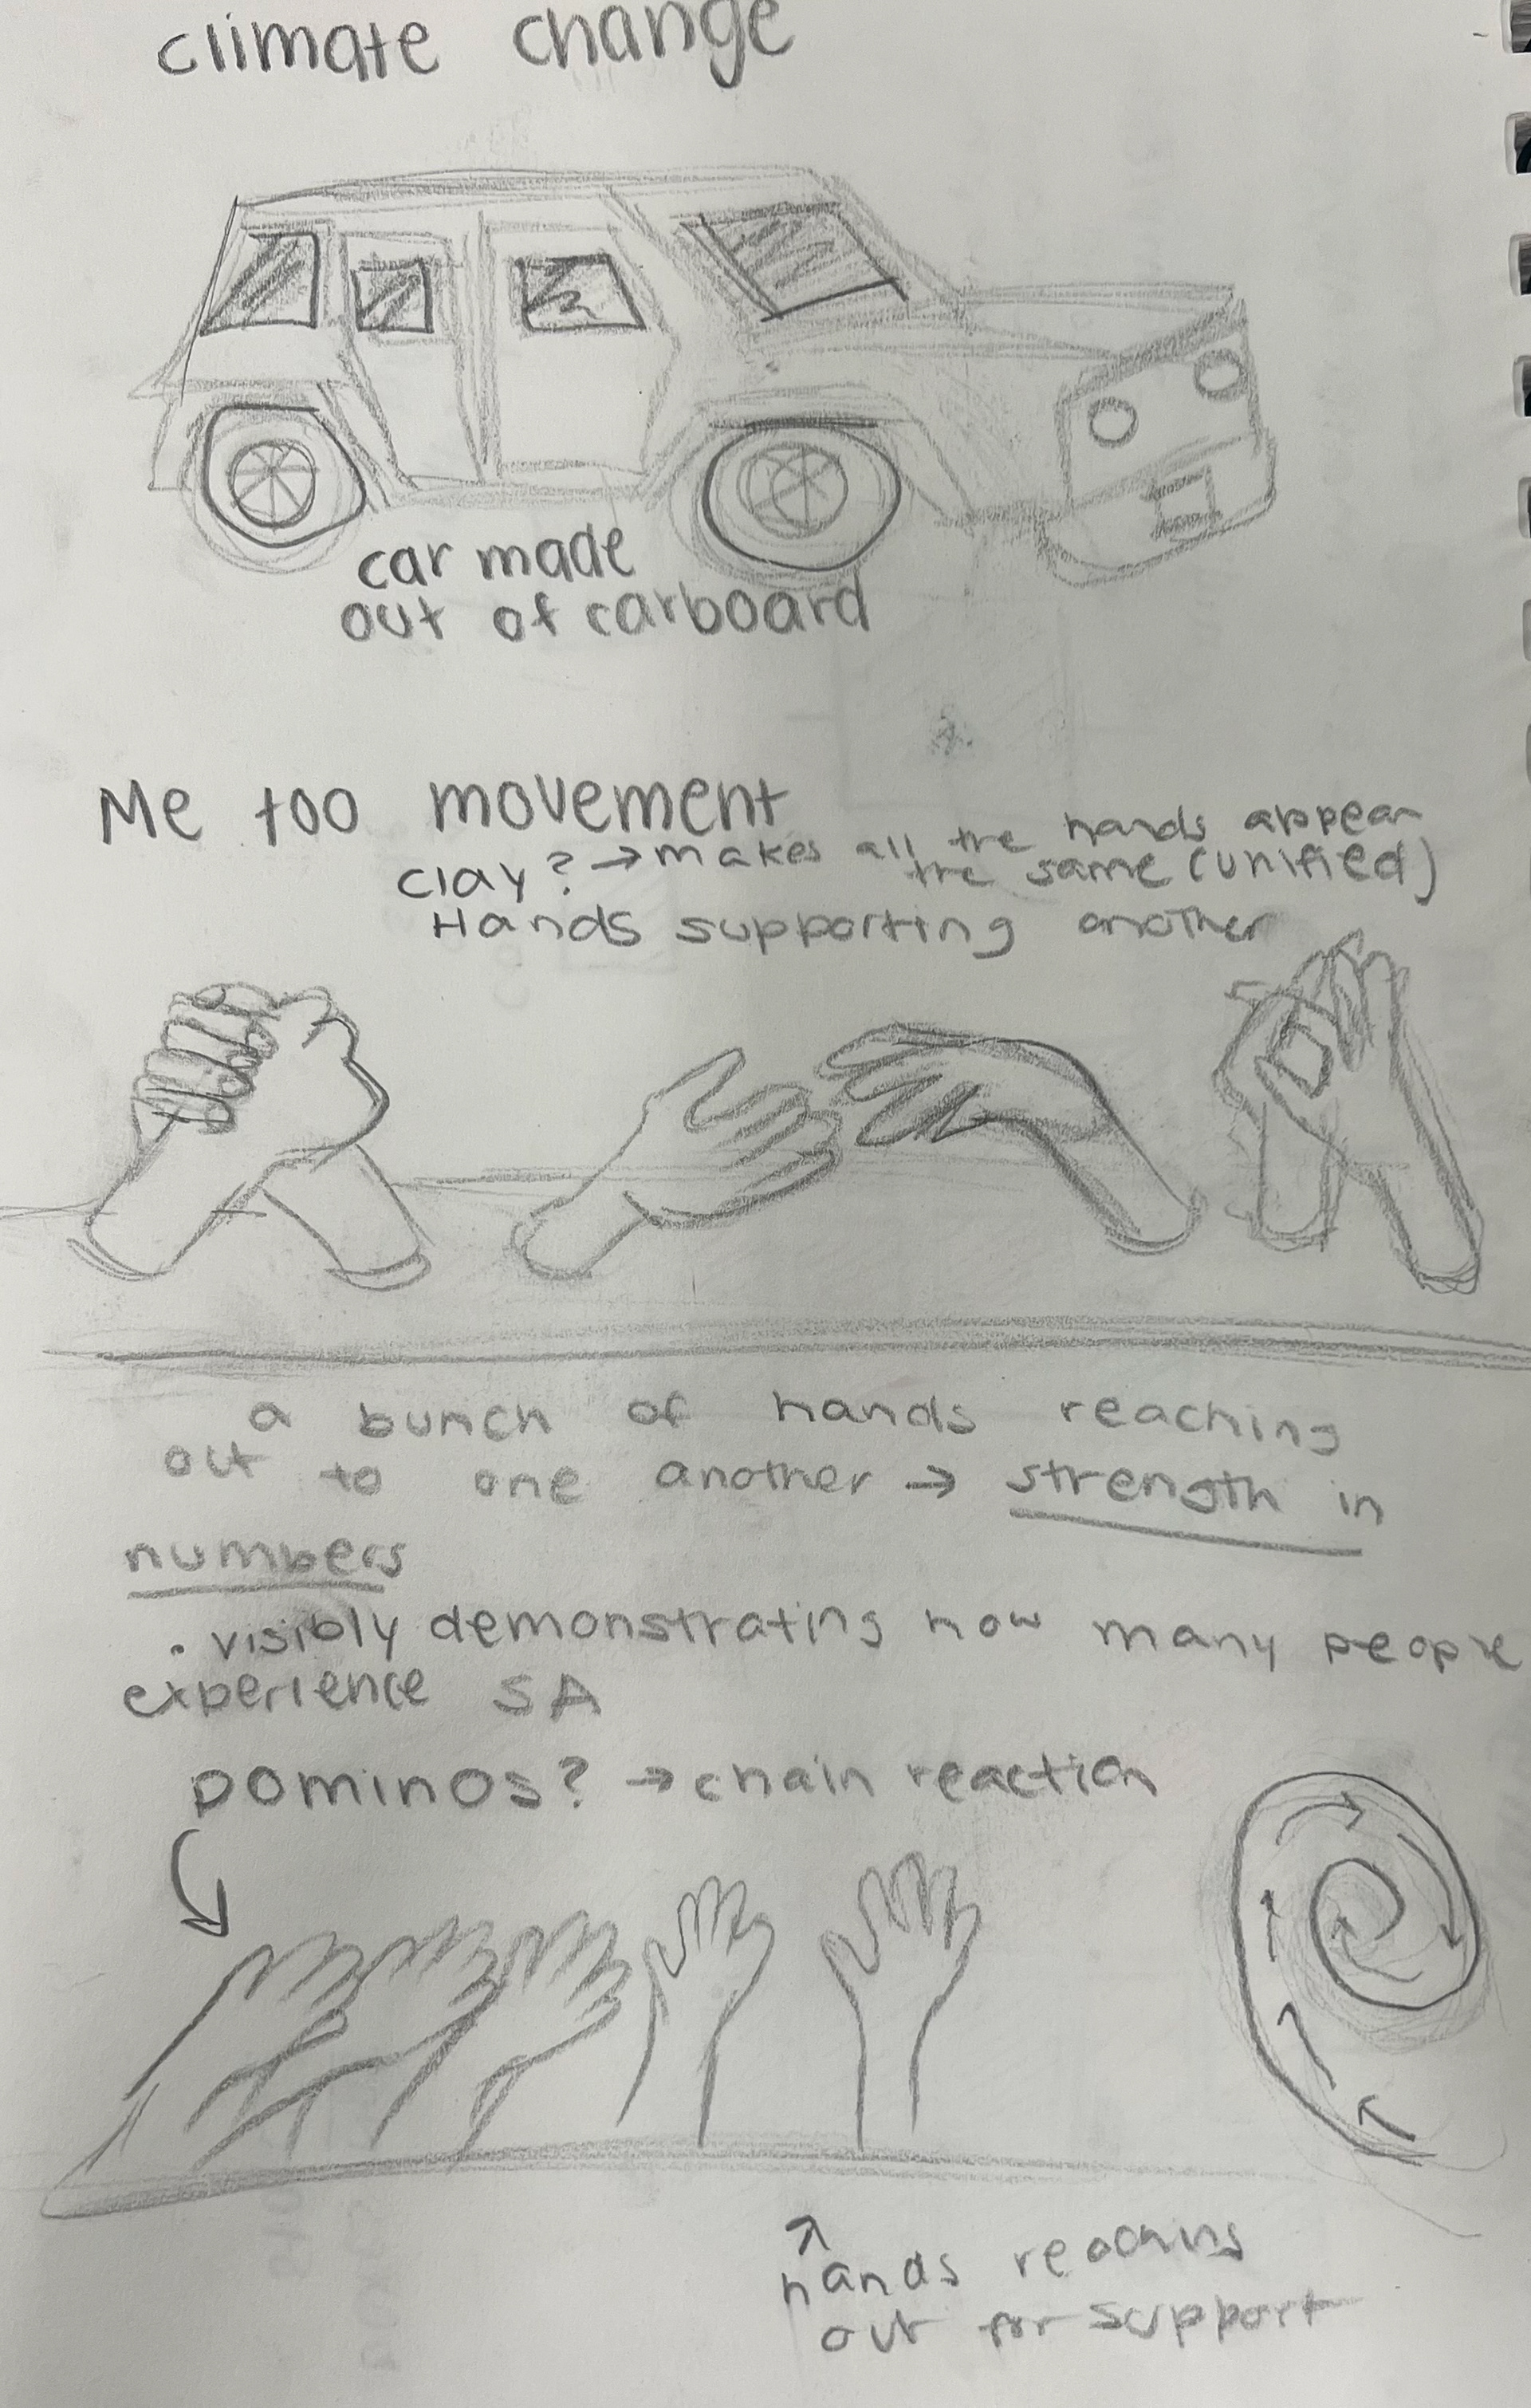 climate change
car made
out of carboard
Me too movement
clay? → makes all the hands appear
the same (unified)
Hands supporting another
a bunch of hands reaching
out to one another → strength in
numbers
• visibly demonstrating how many people
experience SA
Dominos? → chain reaction
hands reaching
out for support